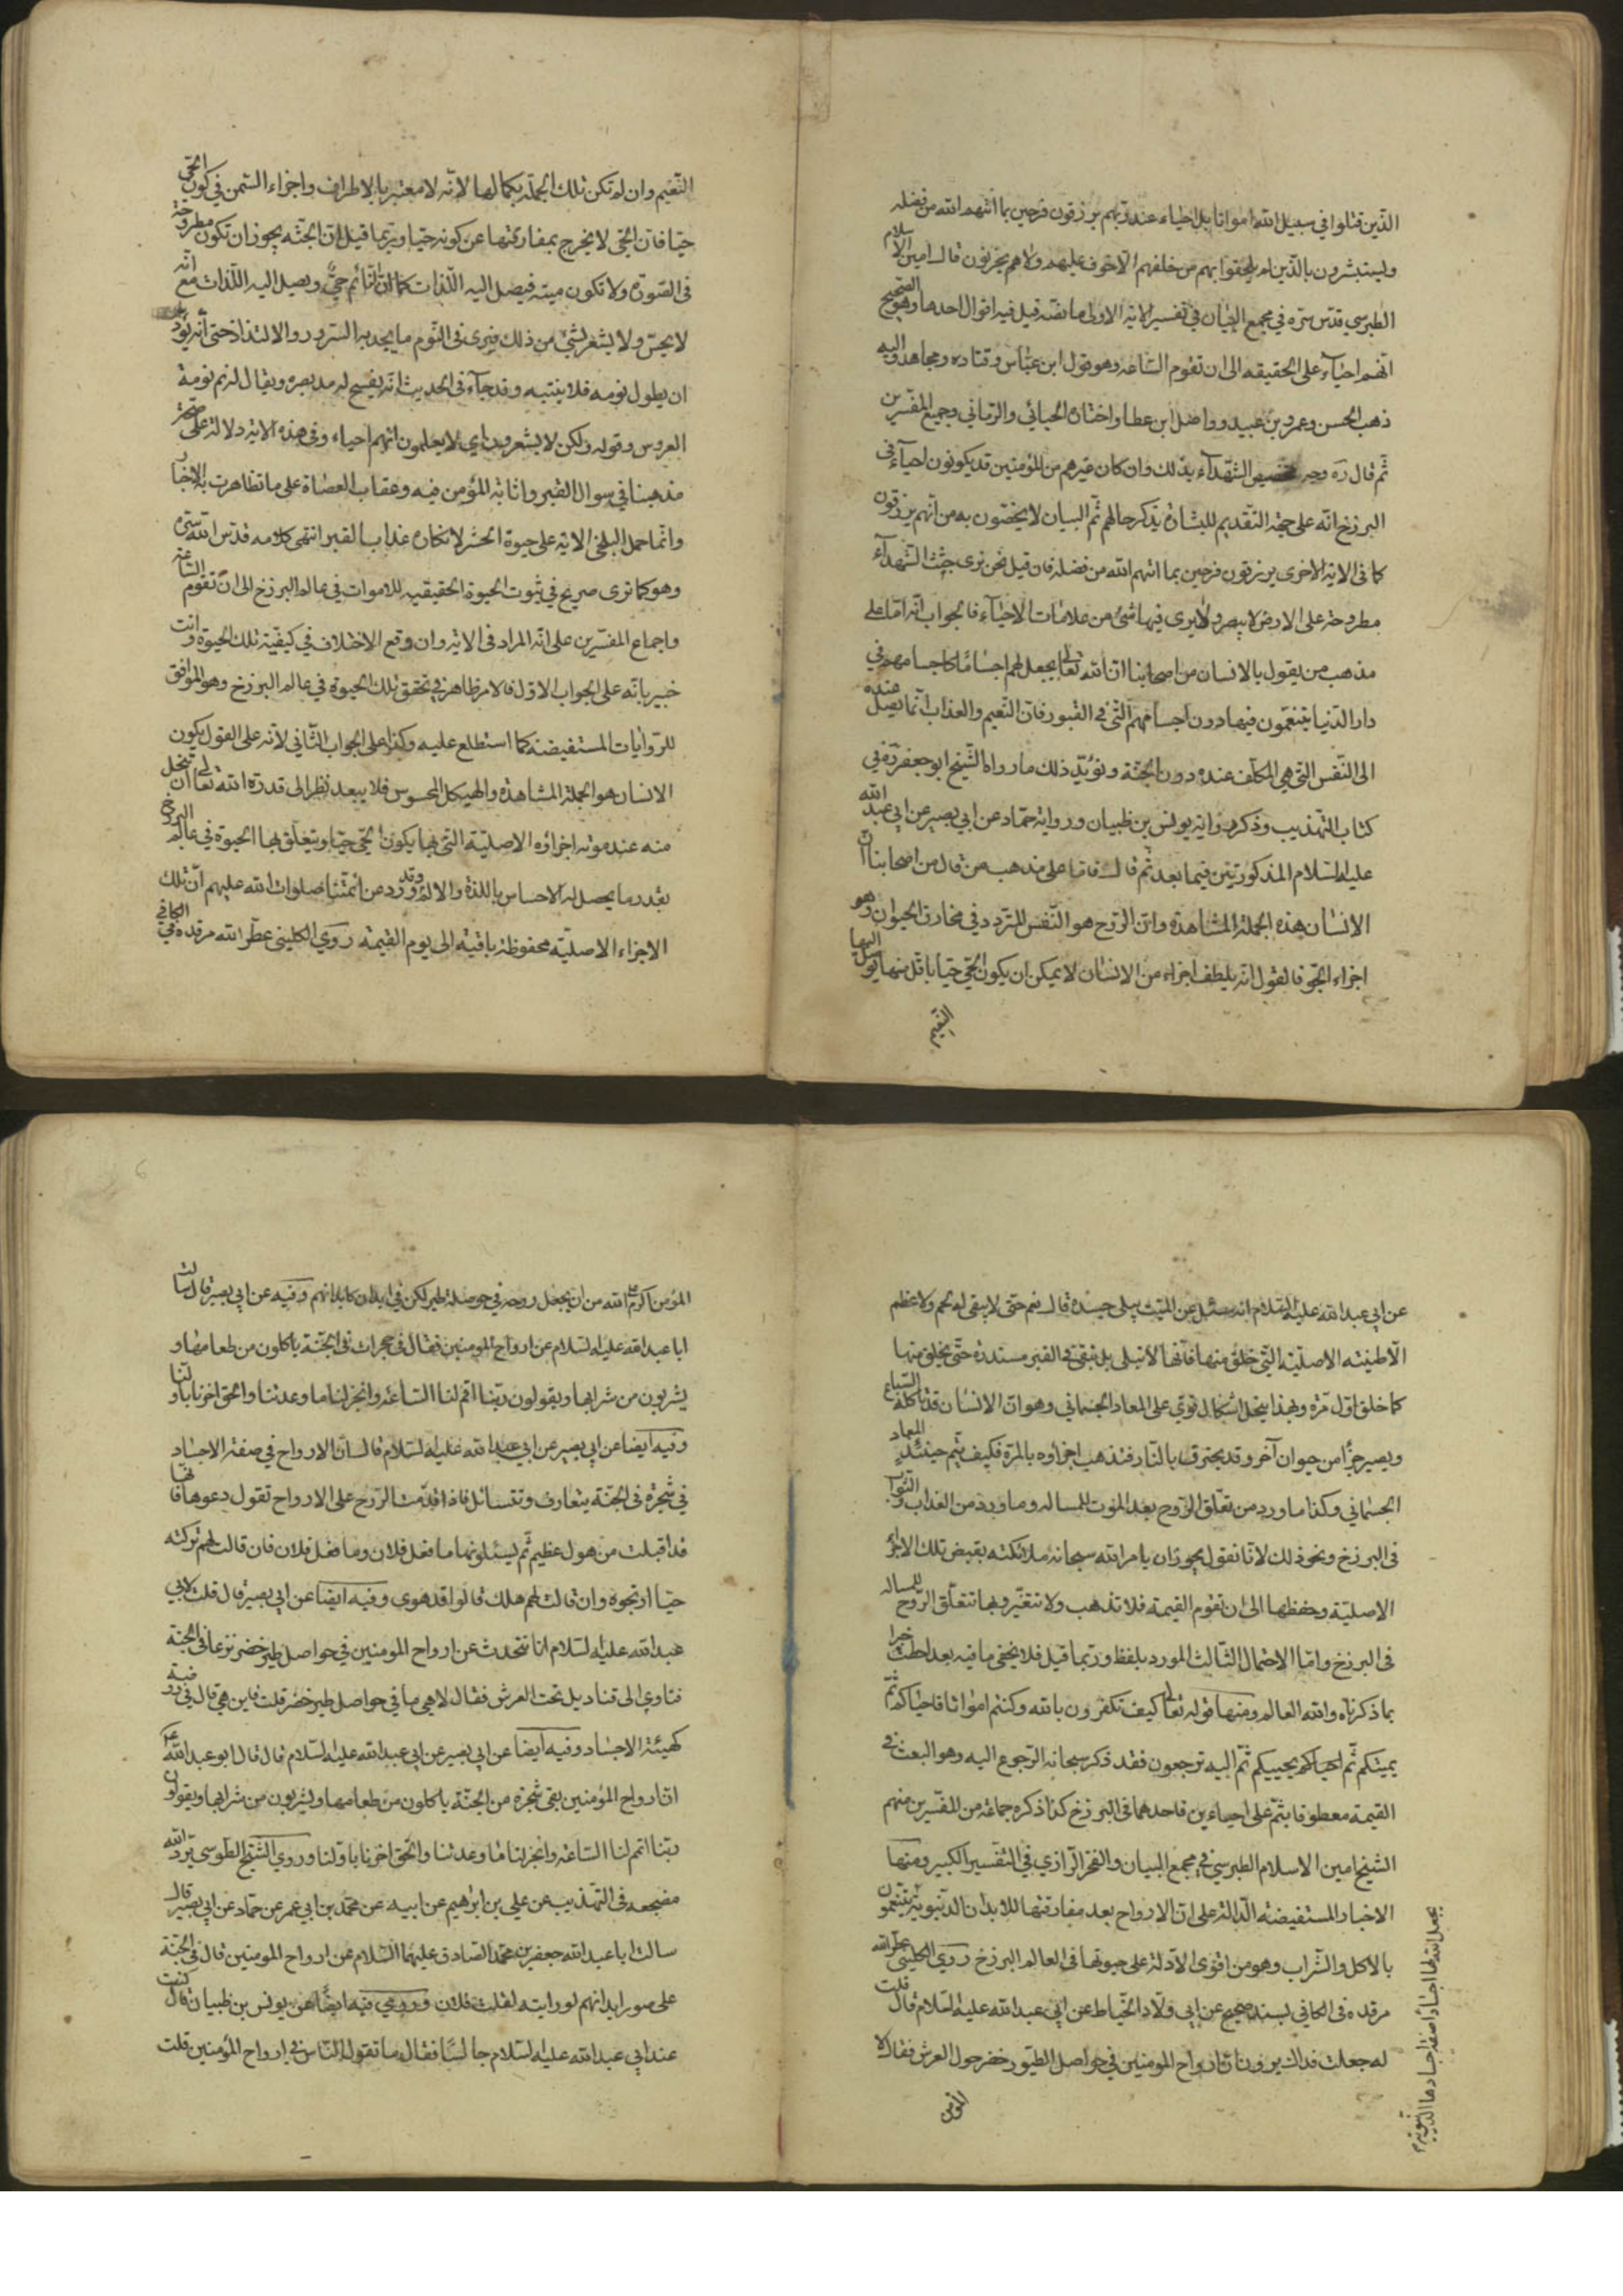 الذين قتلوا في سبيل الله امواتا بل احياء عند ربهم يرزقون فرحين بما اتيهم الله من فضله
ويستبشرون بالذين لم يلحقوا بهم من خلفهم الا خوف عليهم ولا هم يحزنون قال امين الاسلام
الطبرسي قدس سره في مجمع البيان في تفسير الاية الاولى ما نصه قيل فيه اقوال احدها وهو الصحيح
انهم احياء على الحقيقه الى ان تقوم الساعه وهو قول ابن عباس وقتاده ومجاهد واليه
ذهب الحسن وعمرو بن عبيد وواصل ابن عطا واختاره الجبائي والرماني وجميع المفسرين
ثم قال ره وجه تخصيص الشهداء بذلك وان كان غيرهم من المؤمنين قد يكونون احياء في
البرزخ انه على جهة التقديم للبشارة بذكر حالهم ثم البيان لا يختصون به من انهم يرزقون
كما في الاية الاخرى يرزقون فرحين بما اتيهم الله من فضله فان قيل نحن نرى جثث الشهداء
مطروحة على الارض لا يبصر ولا يرى فيها شئ من علامات الاحياء فالجواب انه اما على
مذهب من يقول بالانسان من اصحابنا ان الله تعالى يجعل لهم اجساما كاجسامهم في
دار الدنيا يتنعمون فيها دون اجسامهم التي في القبور فان النعيم والعذاب انما يصل عنده
الى النفس التي هي المكلف عنده دون الجثة ويؤيد ذلك ما رواه الشيخ ابو جعفر ره في
كتاب التهذيب وذكر رواية يونس بن ظبيان ورواية حماد عن ابي بصير عن ابي عبد الله
عليه السلام المذكورتين فيما بعد ثم قال فاما على مذهب من قال من اصحابنا ان
الانسان هذه الجملة المشاهدة وان الروح هو النفس المتردد في مخارق الحيوان وهو
اجزاء الجو فالقول انه يلطف اجزاء من الانسان لا يمكن ان يكون الحي حيا باقل منها يوصل اليها
النعيم
النعيم وان لم تكن تلك الجملة بكمالها لانه لا معتبر بالاطراف واجزاء السمن في كون الحي
حيا فان الحي لا يخرج بمفارقتها عن كونه حيا وربما قيل ان الجثه يجوز ان تكون مطروحة
في الصورة ولا تكون ميته فيصل اليه اللذات كما ان النائم حي ويصل اليه اللذات مع انه
لا يحس ولا يشعر بشئ من ذلك فيرى في النوم ما يجد به السرور والالتذاذ حتى انه يود
ان يطول نومه فلا ينتبه وقد جاء في الحديث انه يفسح له مد بصره ويقال له نم نومة
العروس وقوله ولكن لا يشعرون اي لا يعلمون انهم احياء وفي هذه الاية دلالة على صحة
مذهبنا في سوال القبر واثابة المؤمن فيه وعقاب العصاة على ما تظاهرت به الاخبار
وانما حمل البلخي الاية على حيوة الحشر لانكاره عذاب القبر انتهى كلامه قدس الله سره
وهو كما ترى صريح في ثبوت الحيوة الحقيقيه للاموات في عالم البرزخ الى ان تقوم الساعة
واجماع المفسرين على انه المراد في الاية وان وقع الاختلاف في كيفية تلك الحيوة وانت
خبير بانه على الجواب الاول فالامر ظاهر في تحقق تلك الحيوة في عالم البرزخ وهو الموافق
للروايات المستفيضة كما استطلع عليه وكذا على الجواب الثاني لانه على القول بكون
الانسان هو الجملة المشاهدة والهيكل المحسوس فلا يبعد نظرا الى قدرة الله تعالى ان تنحل
منه عند موته اجزاؤه الاصلية التي بها يكون الحي حيا ويتعلق بها الحيوة في عالم البرزخ
بقدر ما يحصل له الاحساس باللذة والالم وقد ورد عن ائمتنا صلوات الله عليهم ان تلك
الاجزاء الاصلية محفوظة باقية الى يوم القيمة روى الكليني عطر الله مرقده في الكافي
عن ابي عبد الله عليه السلام انه سئل عن الميت يبلى جسده قال نعم حتى لا يبقى له لحم ولا عظم
الا طينته الاصلية التي خلق منها فانها لا تبلى بل تبقى في القبر مستديرة حتى يخلق منها
كما خلق اول مرة وبهذا ينحل اشكال قوي على المعاد الجسماني وهو ان الانسان قد ياكله السباع
ويصير جزأ من حيوان آخر وقد يحترق بالنار فتذهب اجزاؤه بالمرة فكيف يتم حينئذ المعاد
الجسماني وكذا ما ورد من تعلق الروح بعد الموت للمساله وما ورد من العذاب والثواب
في البرزخ ونحو ذلك لانا نقول يجوز ان يامر الله سبحانه ملائكته بقبض تلك الاجزاء
الاصلية وحفظها الى ان تقوم القيمة فلا تذهب ولا تتغير وبها تتعلق الروح للمساله
في البرزخ واما الاحتمال الثالث المورد بلفظ وربما قيل فلا يخفى ما فيه بعد احطت خبرا
بما ذكرناه والله العالم ومنها قوله تعالى كيف تكفرون بالله وكنتم امواتا فاحياكم ثم
يميتكم ثم احياكم يحييكم ثم اليه ترجعون فقد ذكر سبحانه الرجوع اليه وهو البعث في
القيمة معطوفا بثم على احياءين فاحدهما في البرزخ كذا ذكره جماعة من المفسرين منهم
الشيخ امين الاسلام الطبرسي في مجمع البيان والفخر الرازي في التفسير الكبير ومنها
الاخبار المستفيضة الدالة على ان الارواح بعد مفارقتها للابدان الدنيوية يتنعمون
بالاكل والشراب وهو من اقوى الادلة على حيوتها في العالم البرزخ روى الكليني عطر الله
مرقده في الكافي بسند صحيح عن ابي ولاد الحناط عن ابي عبد الله عليه السلام قال قلت
له جعلت فداك يروون ان ارواح المومنين في حواصل الطيور خضر حول العرش فقال لا
المؤمن
يجعل الله لها اجسادا صفة اجسادها الدنيوية
المؤمن اكرم على الله من ان يجعل روحه في حوصلة طير لكن في ابدان كابدانهم وفيه عن ابي بصير قال سالت
ابا عبد الله عليه السلام عن ارواح المومنين فقال في حجرات في الجنة ياكلون من طعامها و
يشربون من شرابها ويقولون ربنا اقم لنا الساعة وانجز لنا ما وعدتنا والحق اخرنا باولنا
وفيه ايضا عن ابي بصير عن ابي عبد الله عليه السلام قال ان الارواح في صفة الاجساد
في شجرة في الجنة يتعارف وتتسائل فاذا قدمت الروح على الارواح تقول دعوها فانها
قد اقبلت من هول عظيم ثم يسئلونها ما فعل فلان وما فعل فلان فان قالت لهم تركته
حيا ارتجوه وان قالت لهم هلك قالوا قد هوى وفيه ايضا عن ابي بصير قال قلت لابي
عبد الله عليه السلام انا نتحدث عن ارواح المومنين في حواصل طير خضر ترعى في الجنة
فتاوي الى قناديل تحت العرش فقال لا هي ما في حواصل طير خضر قلت فاين هي قال في روضة
كهيئة الاجساد وفيه ايضا عن ابي بصير عن ابي عبد الله عليه السلام قال قال ابو عبد الله ع
ان ارواح المؤمنين بقي شجرة من الجنة ياكلون من طعامها ويشربون من شرابها ويقولون
ربنا اتم لنا الساعة وانجز لنا ما وعدتنا والحق اخرنا باولنا وروى الشيخ الطوسي برد الله
مضجعه في التهذيب عن علي بن ابرهيم عن ابيه عن محمد بن ابي عمير عن حماد عن ابي بصير قال
سالت ابا عبد الله جعفر بن محمد الصادق عليهما السلام عن ارواح المومنين قال في الجنة
على صور ابدانهم لو رايته لقلت فلان وروى فيه ايضا عن يونس بن ظبيان قال كنت
عند ابي عبد الله عليه السلام جالسا فقال ما تقول الناس في ارواح المؤمنين قلت